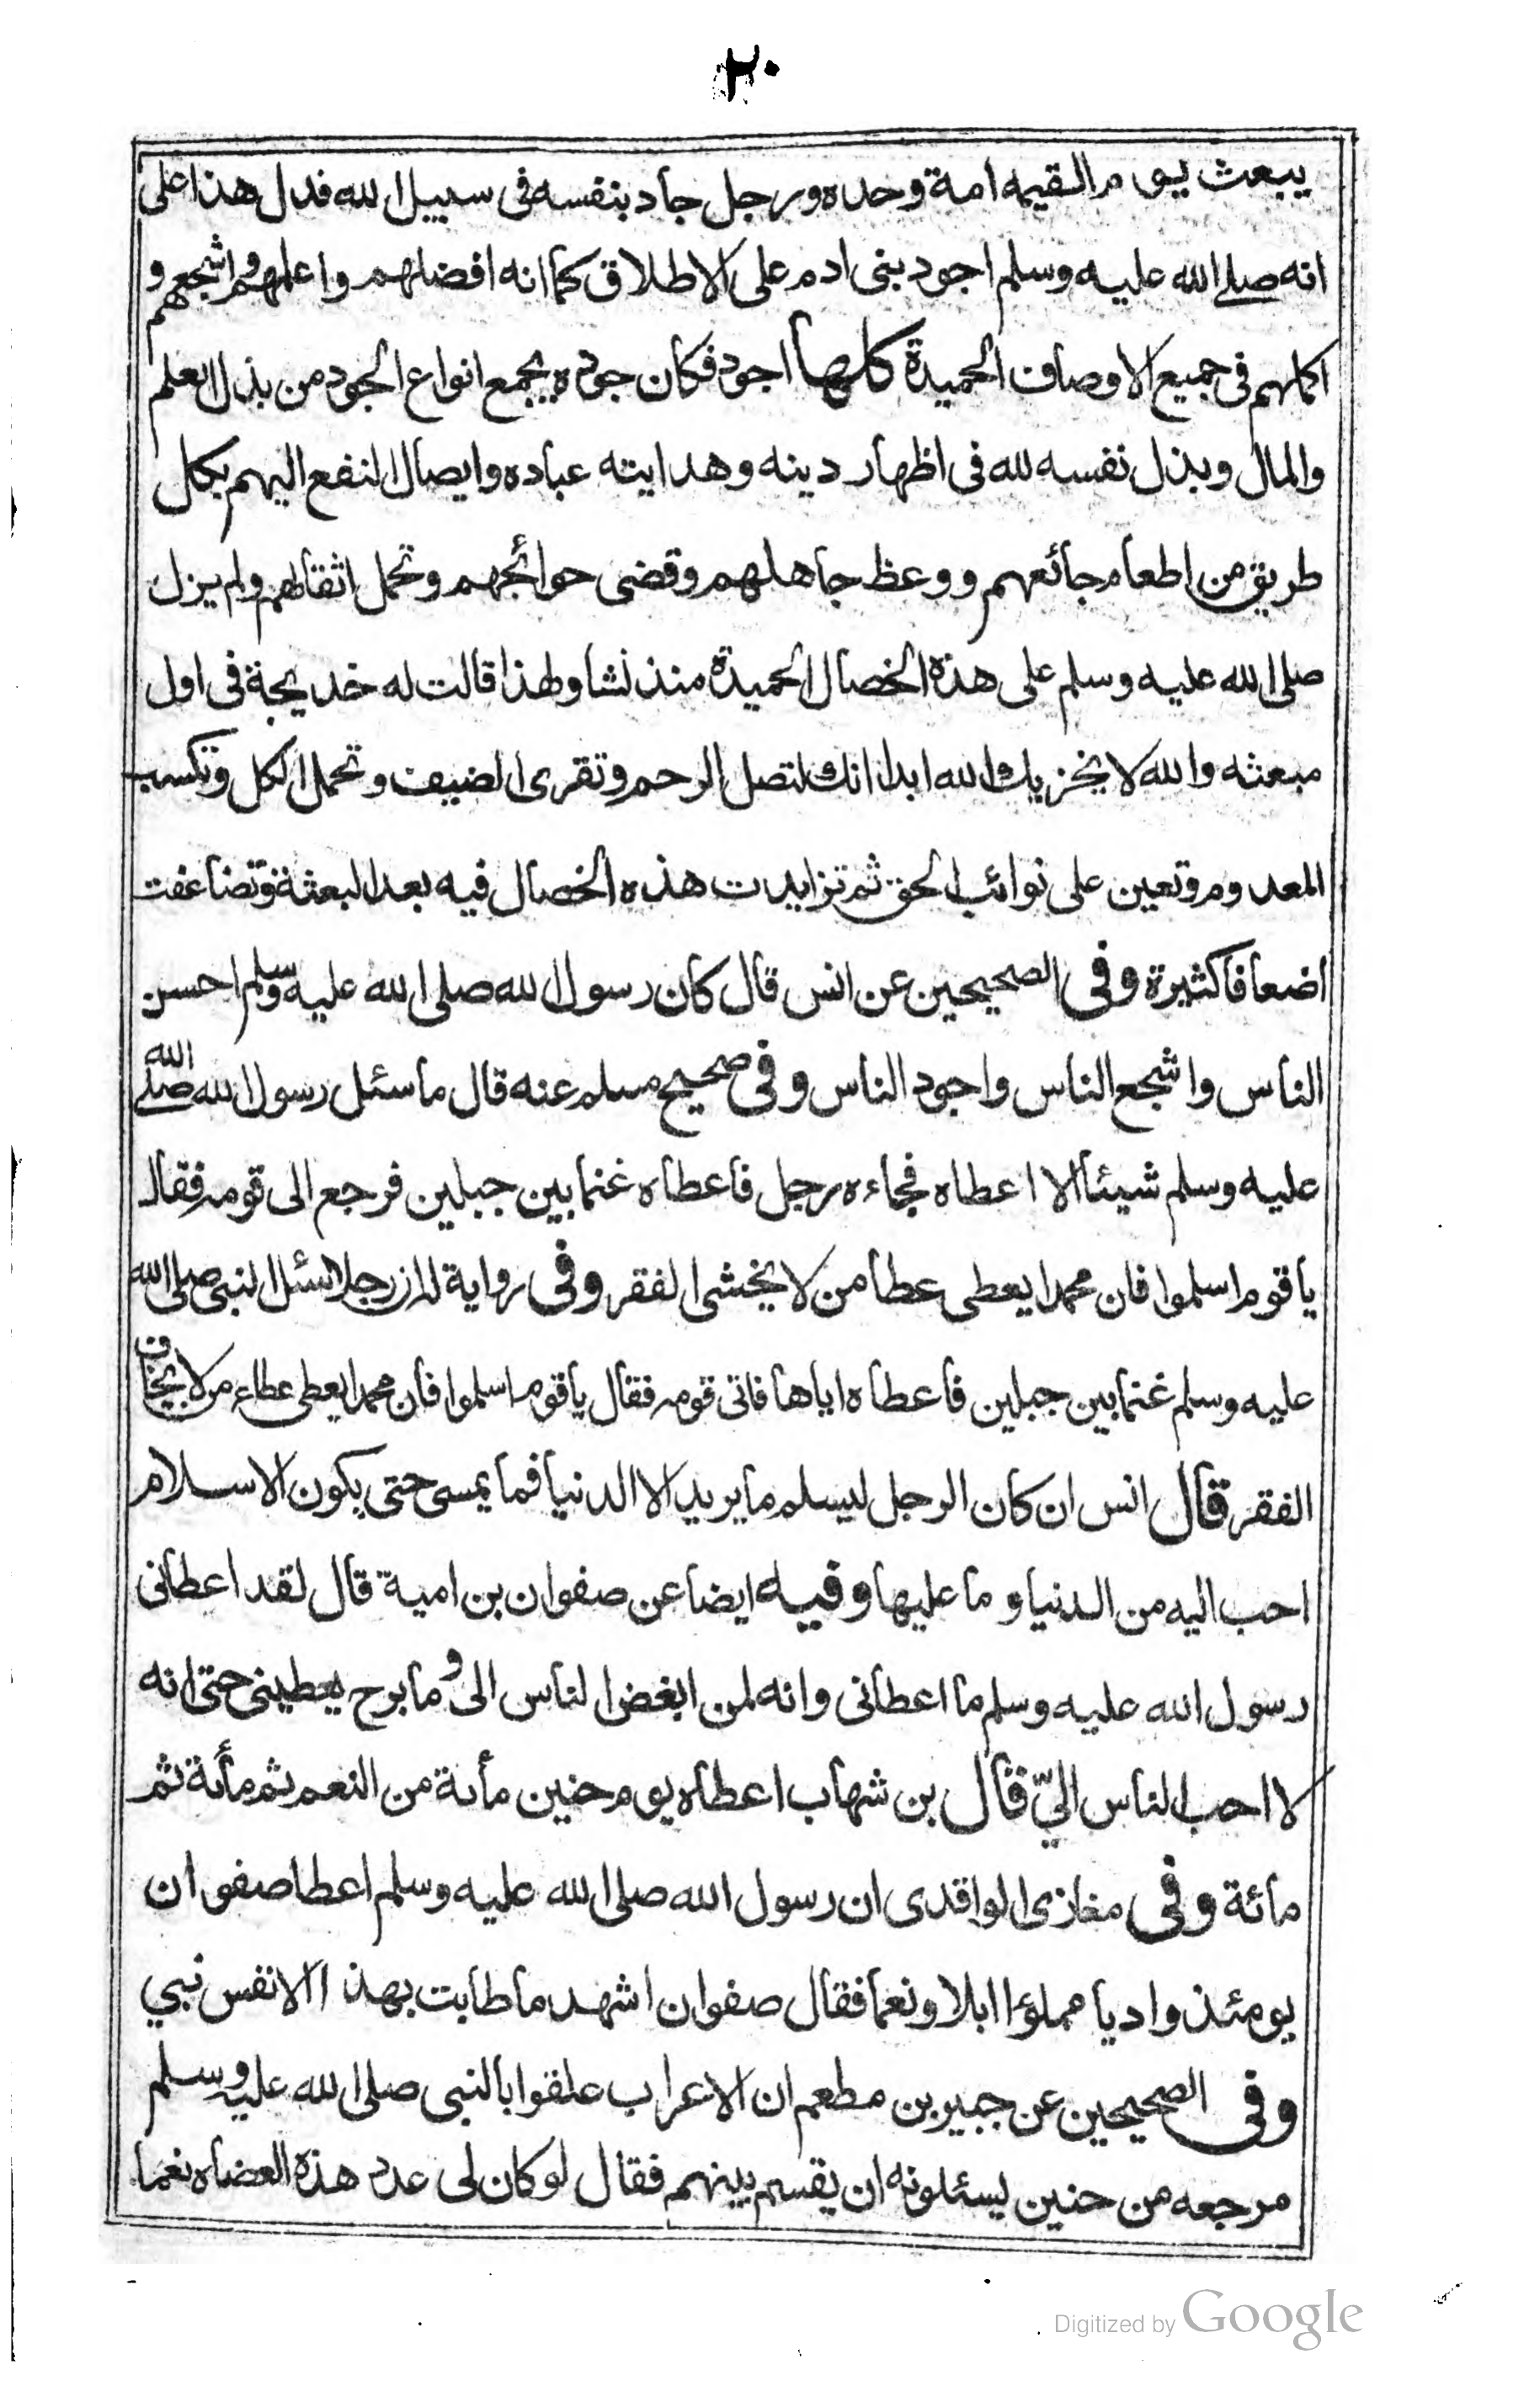 ٢٠
يبعث يوم القيمه امة وحده ورجل جاد بنفسه فى سبيل الله فدل هذا على
انه صلے الله عليه وسلم اجود بنى ادم على الاطلاق كما انه افضلهم واعلمهم واشجعهم و
اكملهم فى جميع الاوصاف الحميدة كلها اجود فكان جوده يجمع انواع الجود من بذل العلم
والمال وبذل نفسه لله فى اظهار دينه وهدايته عباده وايصال النفع اليهم بكل
طريق من اطعام جائعهم ووعظ جاهلهم وقضى حوائجهم وتحمل اثقالهم ولم يزل
صلى الله عليه وسلم على هذة الخصال الحميدة منذ نشا ولهذا قالت له خديجة فى اول
مبعثه والله لا يخزيك الله ابدا انك لتصل الرحم وتقرى الضيف وتحمل الكل وتكسب
المعدوم وتعين على نوائب الحق ثم تزايدت هذه الخصال فيه بعد البعثة وتضاعفت
اضعافا كثيرة وفى الصحيحين عن انس قال كان رسول الله صلى الله عليه وسلم احسن
الناس واشجع الناس واجود الناس وفى صحيح مسلم عنه قال ما سئل رسول الله صلے الله
عليه وسلم شيئا الا اعطاه فجاءه رجل فاعطاه غنما بين جبلين فرجع الى قومه فقال
يا قوم اسلموا فان محمدا يعطى عطا من لا يخشى الفقر وفى رواية له ان رجلا سئل النبى صلى الله
عليه وسلم غنما بين جبلين فاعطاه اياها فاتى قومه فقال يا قوم اسلموا فان محمدا يعطى عطاء من لا يخاف
الفقر قال انس ان كان الرجل ليسلم ما يريد الا الدنيا فما يمسى حتى يكون الاسلام
احب اليه من الدنيا و ما عليها وفيه ايضا عن صفوان بن امية قال لقد اعطانى
رسول الله عليه وسلم ما اعطانى وانه لمن ابغض الناس الى وما برح يعطينى حتى انه
لا احب الناس اليّ قال بن شهاب اعطاه يوم حنين مأىة من النعم ثم مأىة ثم
مائة وفى مغازى الواقدى ان رسول الله صلى الله عليه وسلم اعطا صفوان
يومئذ واديا مملؤا ابلا ونعما فقال صفوان اشهد ما طابت بهذا الا نفس نبي
وفى الصحيحين عن جبير بن مطعم ان الاعراب علقوا بالنبى صلى الله عليه وسلم
مرجعه من حنين يسئلونه ان يقسم بينهم فقال لو كان لى عدد هذة العضاه نعما
Digitized by Google